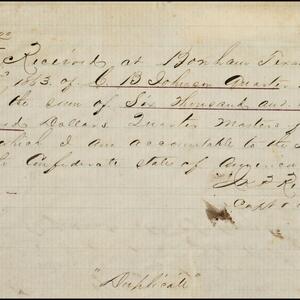 Received at Bonham Texas
1863 of C B Johnson Quarter
the sum of Six Thousand and
Dollars Quarter Masters
which I am accountable to the
Confederate States of America
Capt
"Duplicate"